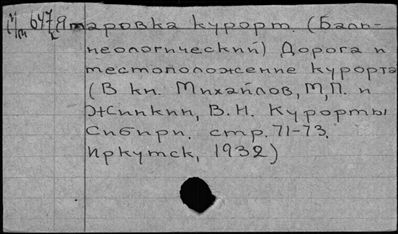 Ямаровка курорт. (Баль-
неологический) Дорога и
местоположение курорта
(В кн. Михайлов, М.П. и
Жинкин, В.Н. Курорты
Сибири. стр. 71-73.
Иркутск, 1932)